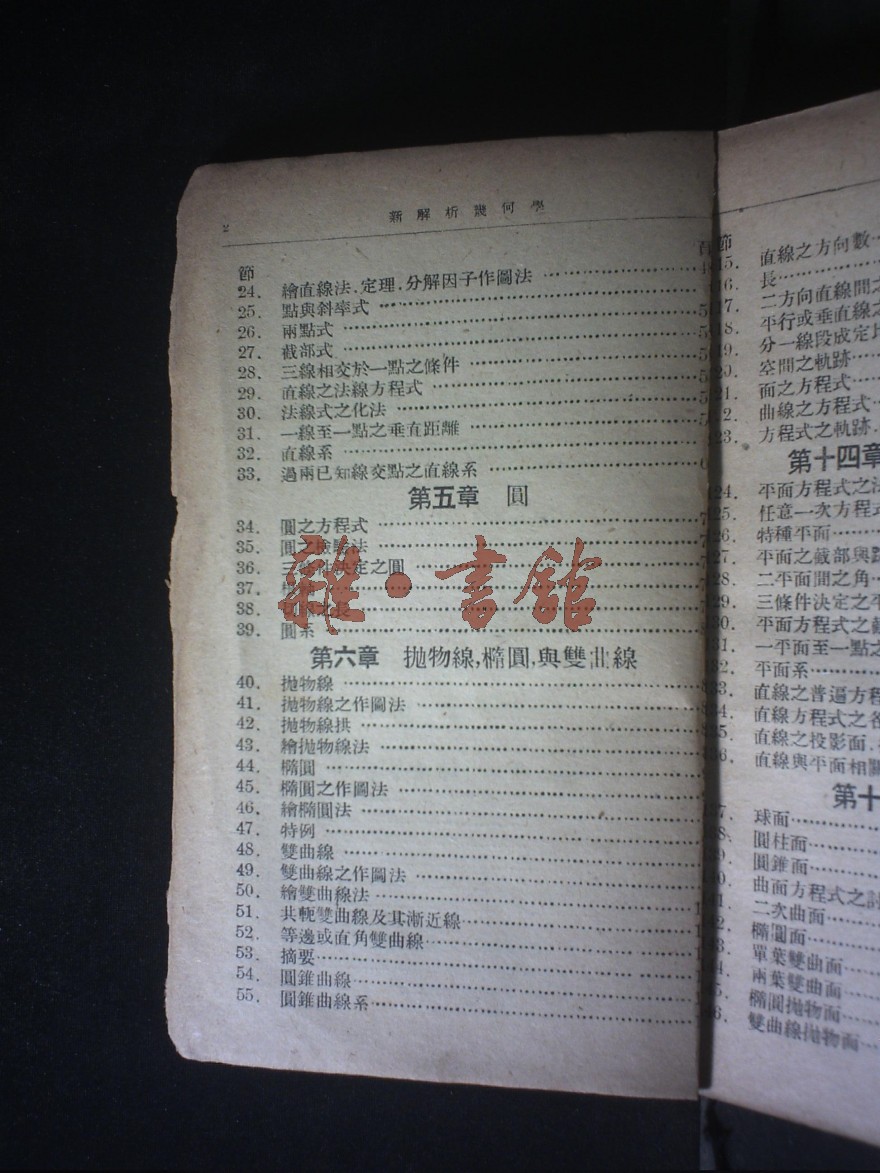 2
新解析幾何學
節
24. 繪直線法.定理.分解因子作圖法
25. 點與斜率式
26. 兩點式
27. 截部式
28. 三線相交於一點之條件
29. 直線之法線方程式
30. 法線式之化法
31. 一線至一點之垂直距離
32. 直線系
33. 過兩已知線交點之直線系
第五章 圓
34. 圓之方程式
35. 圓之檢驗法
36. 三條件決定之圓
37.
38. 之長
39. 圓系
雜·書館
第六章 拋物線,橢圓,與雙曲線
40. 拋物線
41. 拋物線之作圖法
42. 拋物線拱
43. 繪拋物線法
44. 橢圓
45. 橢圓之作圖法
46. 繪橢圓法
47. 特例
48. 雙曲線
49. 雙曲線之作圖法
50. 繪雙曲線法
51. 共軛雙曲線及其漸近線
52. 等邊或直角雙曲線
53. 摘要
54. 圓錐曲線
55. 圓錐曲線系
節
直線之方向數
長
二方向直線間之
平行或垂直線之
分一線段成定比
空間之軌跡
面之方程式
曲線之方程式
方程式之軌跡
第十四章
平面方程式之法
任意一次方程式
特種平面
平面之截部與跡
二平面間之角
三條件決定之平
平面方程式之截
一平面至一點之
平面系
直線之普遍方程
直線方程式之各
直線之投影面
直線與平面相關
第十
球面
圓柱面
圓錐面
曲面方程式之討
二次曲面
橢圓面
單葉雙曲面
兩葉雙曲面
橢圓拋物面
雙曲線拋物面